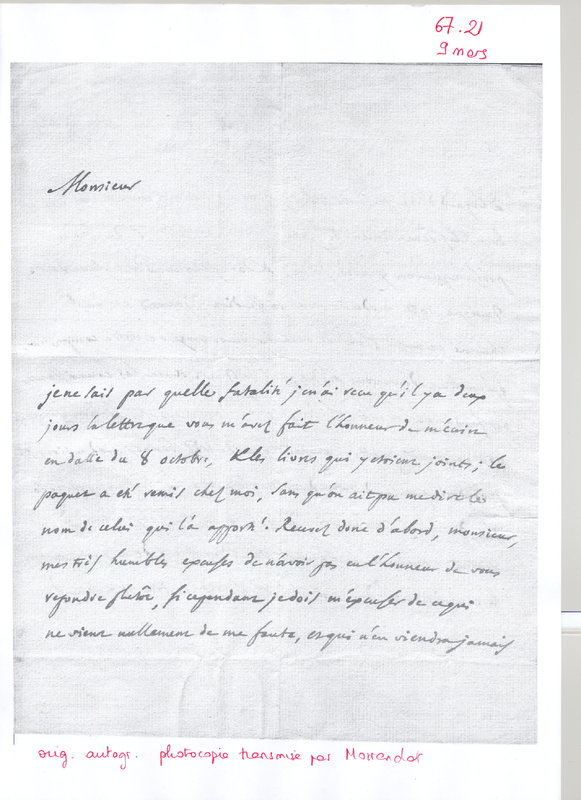 67.21
9 mars
Monsieur
je ne sais par quelle fatalité je n'ai recu qu'il y a deux
jours la lettre que vous m'avez fait l'honneur de m'écrire
en datte du 8 octobre, & les livres qui y etoient joints; le
paquet a eté remis chez moi, sans qu'on ait pu me dire le
nom de celui qui l'a apporté. Recevez donc d'abord, monsieur,
mes très humbles excuses de n'avoir pas eu l'honneur de vous
repondre plutôt, si cependant je dois m'excuser de ce qui
ne vient nullement de ma faute, et qui n'en viendra jamais
orig. autogr. photocopie transmise par